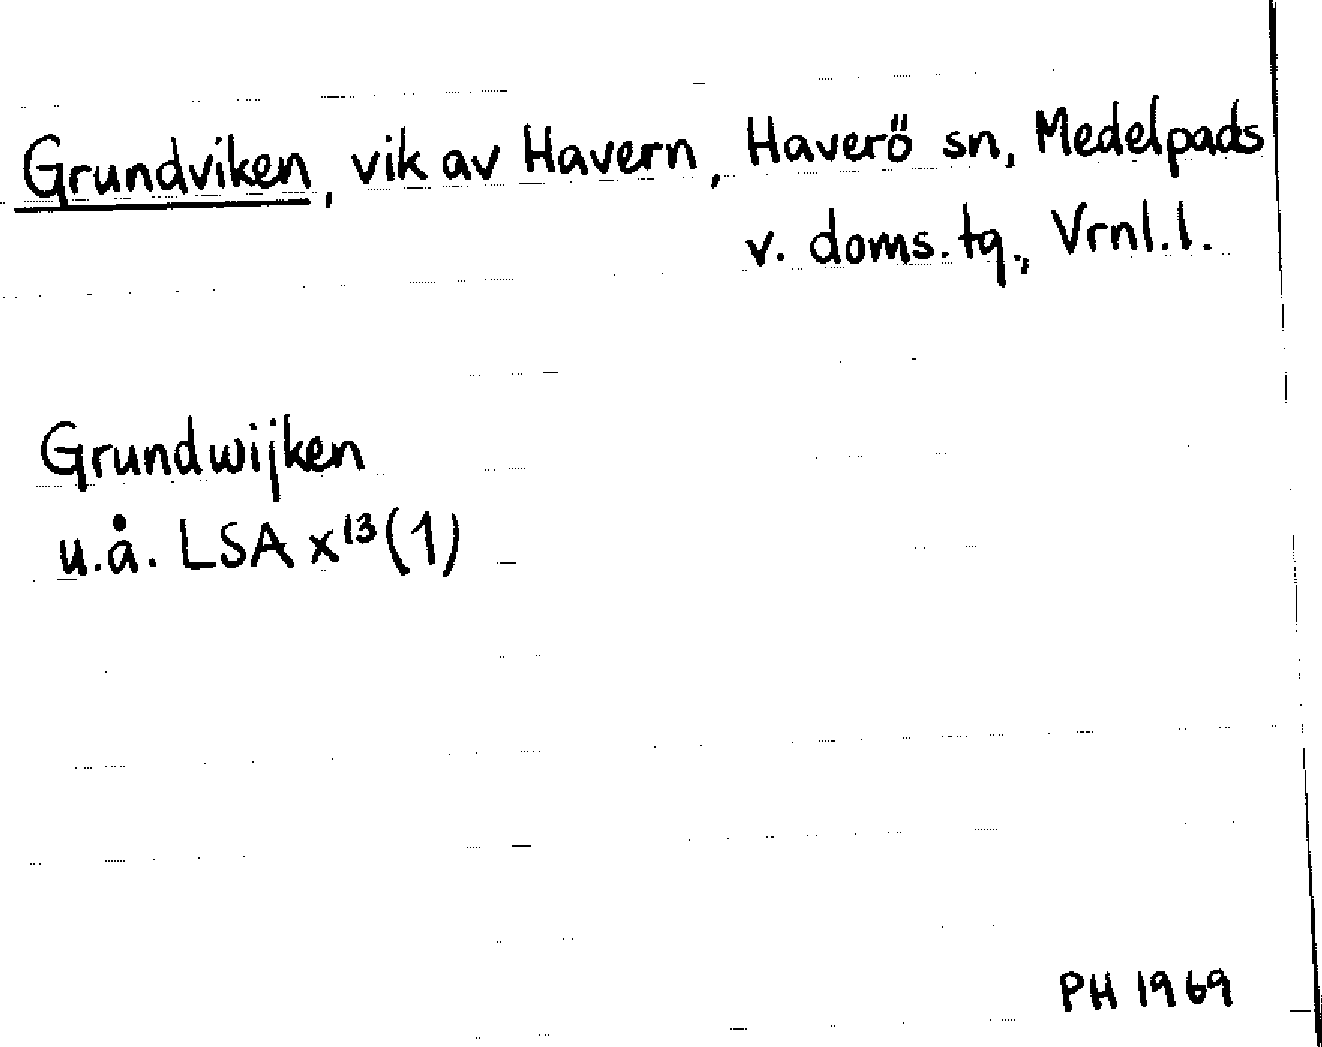 Grundviken, vik av Havern, Haverö sn, Medelpads
v. doms.tg., Vrnl.l.
Grundwijken
u.å. LSA x¹³(1)
PH 1969